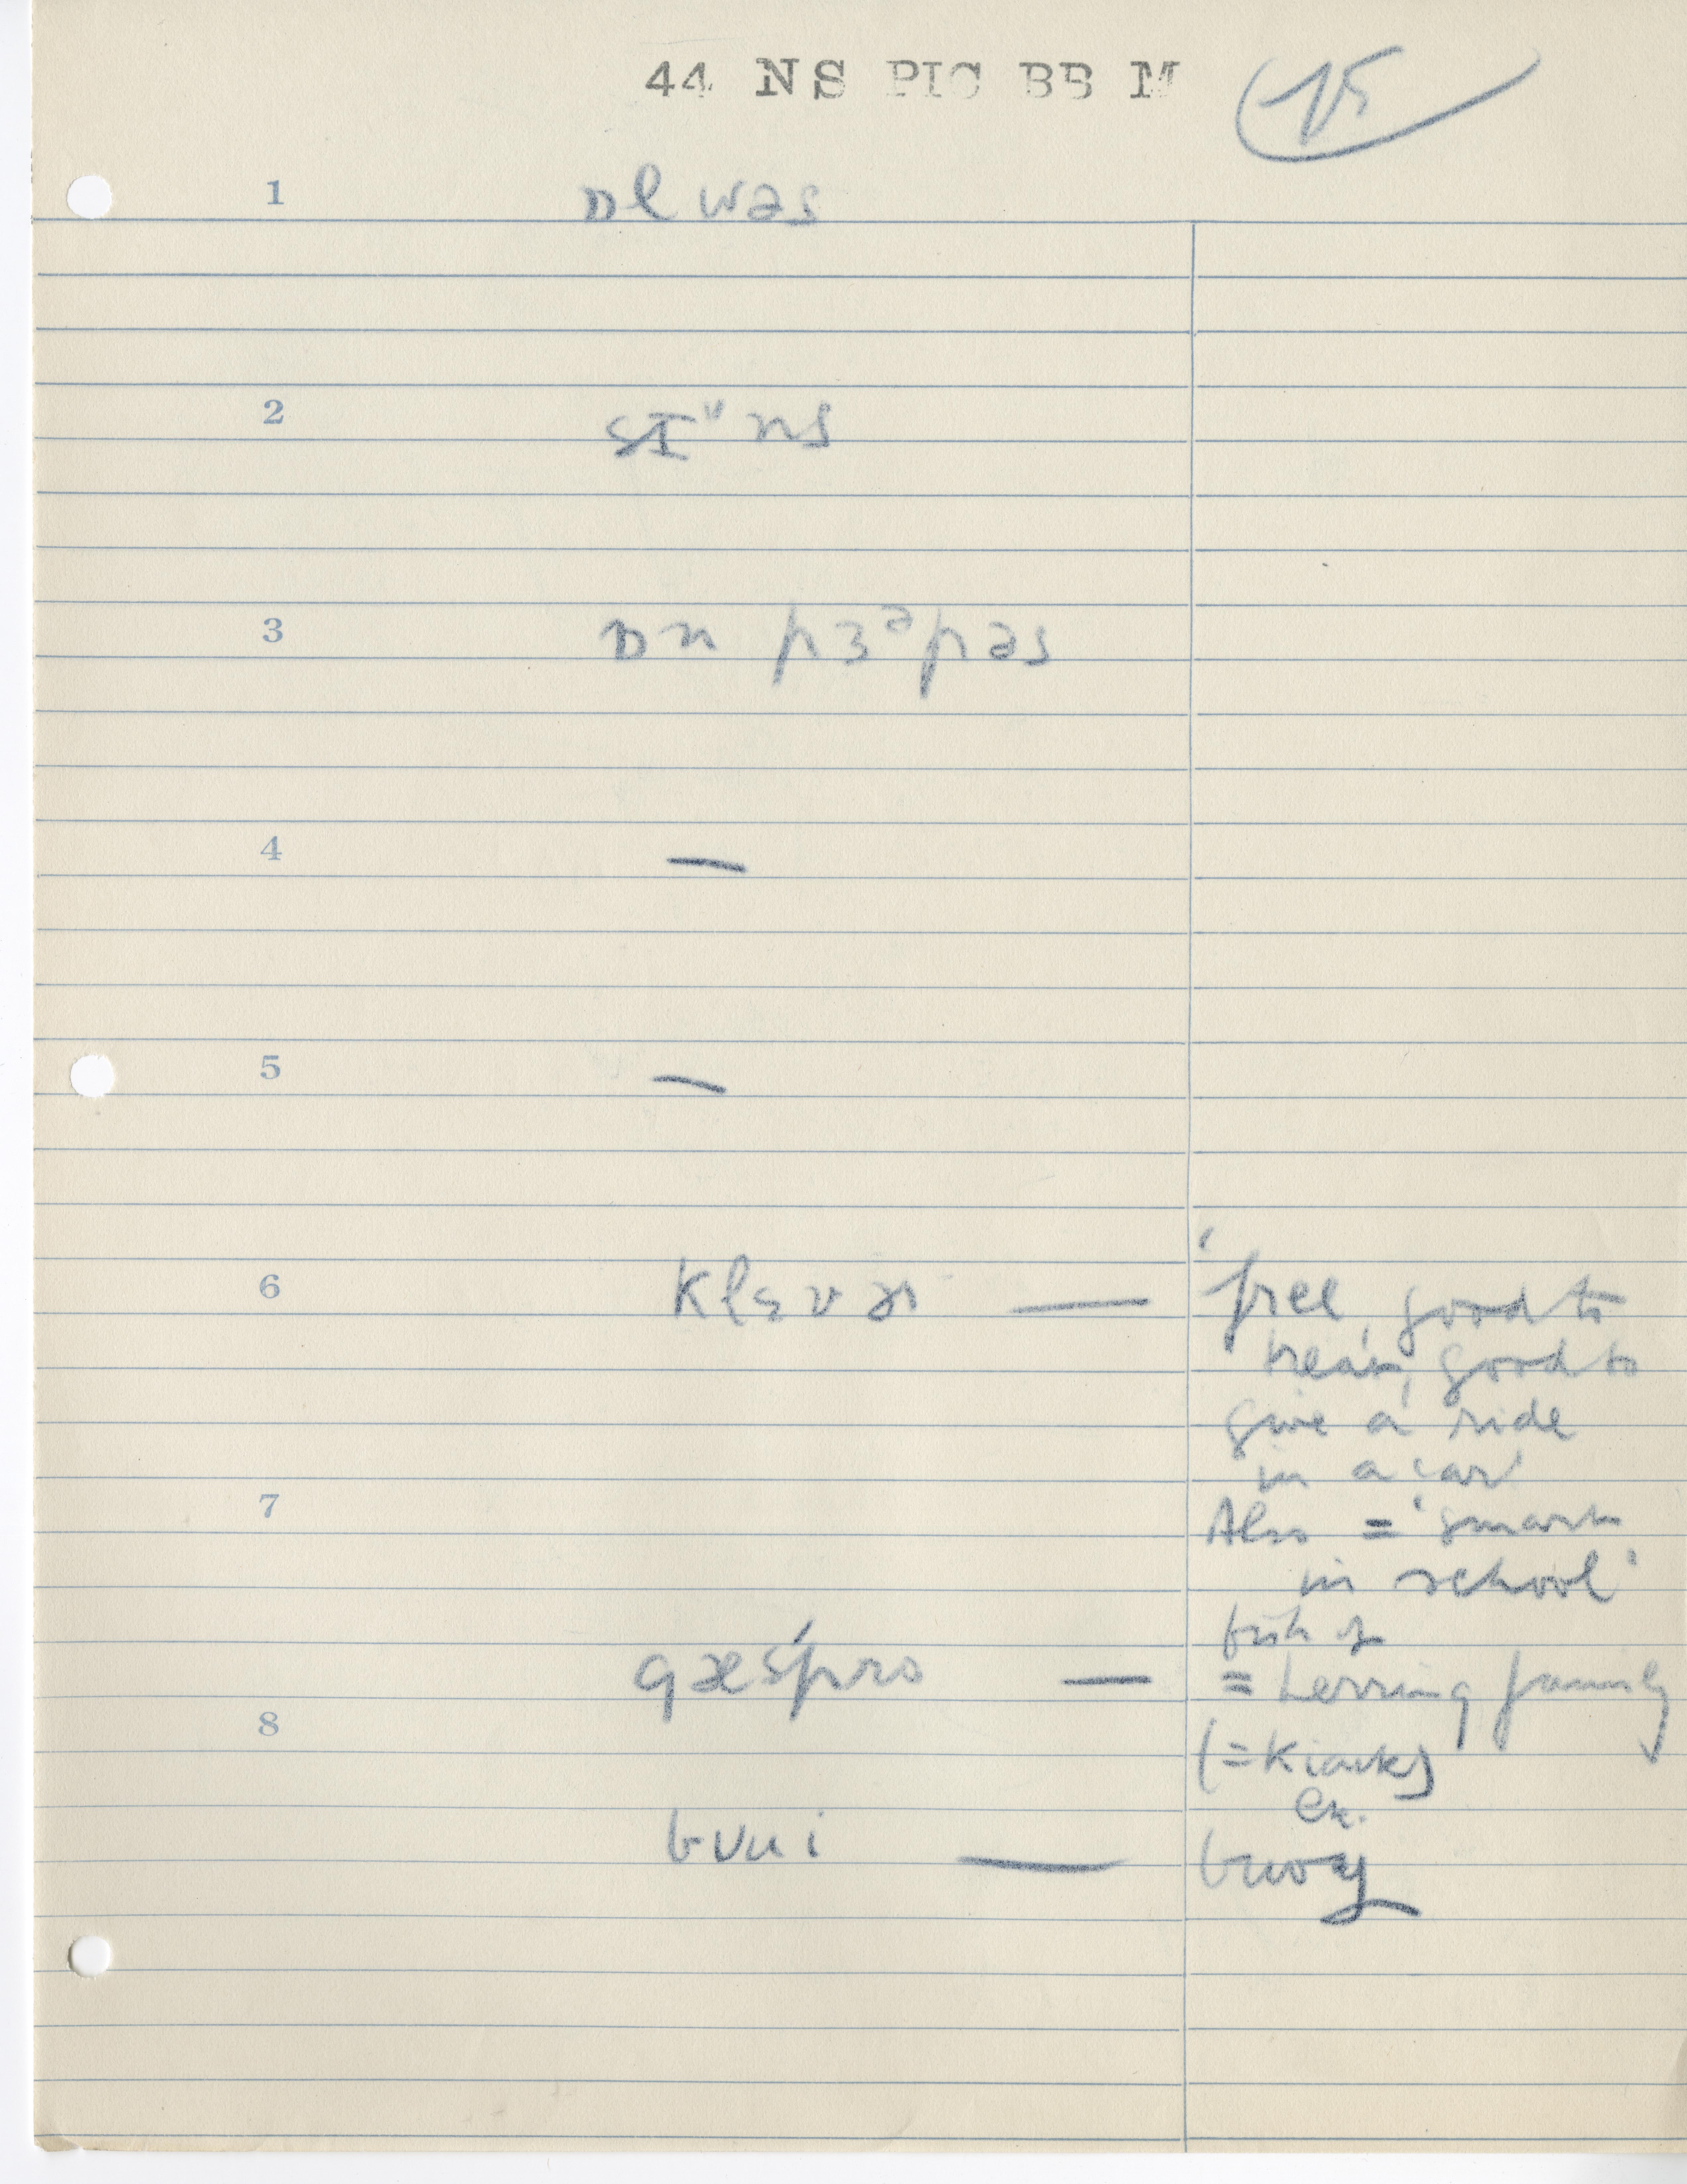 44 NS PIC BB M 15
1 ɒl wəs
2 sɪᶸns
3 ɒn pɜᵊpəs
4 —
5 —
6 klɛvər — 'free, good to
treat, good to
give a ride
in a car'
7 Also = 'smart
in school'
fish of
gæspro — = herring family
8 (= Kiacks)
ex.
bʊui — buoy